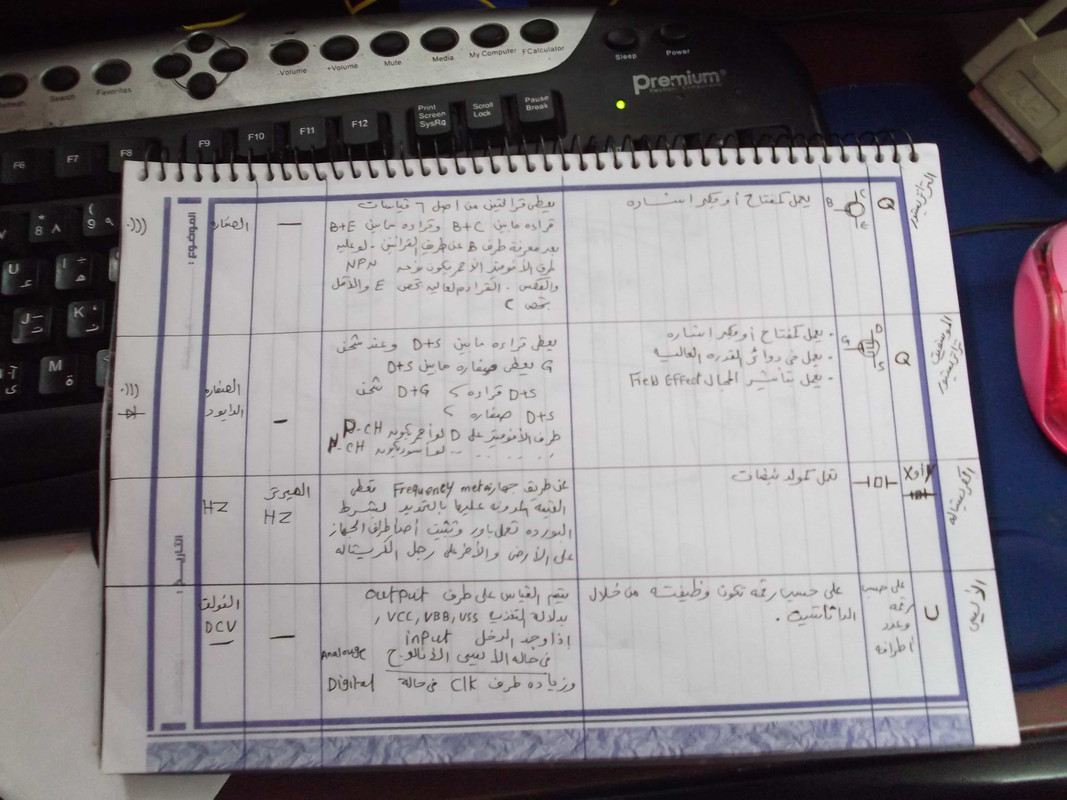 Refresh
Search
Favorites
-Volume
+Volume
Mute
Media
My Computer
FCalculator
Sleep
Power
premium
Print Screen SysRq
Scroll Lock
Pause Break
F6
F7
F8
F9
F10
F11
F12
الموضوع :
التاريخ :
Q
B
C
E
يعمل كمفتاح أو مكبر اشاره
يعطى قرائتين من اصل ٦ قياسات
قراءه مابين B+C وقراءه مابين B+E
بعد معرفة طرف B عن طريق القرائتين . لو عليه
طرف الأفوميتر الأحمر يكون نوعه NPN
والعكس . القراءه العاليه تخص E والأقل
تخص C
—
الصفاره
Q
G
D
S
- يعمل كمفتاح أو مكبر اشاره
- يعمل فى دوائر القدره العاليه
- يعمل بتأثير المجال Field Effect
يعطى قراءه مابين D+S وعند شحن
G يعطى صفاره مابين D+S
D+S قراءه > D+G شحن
D+S صفاره >
طرف الأفوميتر على D لو أحمر يكون P-CH
لو أسود يكون N-CH
—
الصفاره
الدايود
الكريستاله
X أو Y
تعمل كمولد نبضات
عن طريق جهاز Frequency meter تعطى
القيمة المدونه عليها بالتحديد لشرط
البورده تعمل باور وتثبيت أحد أطراف الجهاز
على الأرض والأخر على رجل الكريستاله
الهيرتز
HZ
HZ
الأيسى
U
على حسب
رقمه
وعدد
أطرافه
على حسب رقمه تكون وظيفته من خلال
الداتاشيت .
يتم القياس على طرف output
بدلالة التغذيه VCC, VBB, VSS ,
إذا وجد الدخل input
فى حاله الأيسى الأنالوج Analouge
وزياده طرف Clk فى حالة Digital
—
الفولت
DCV